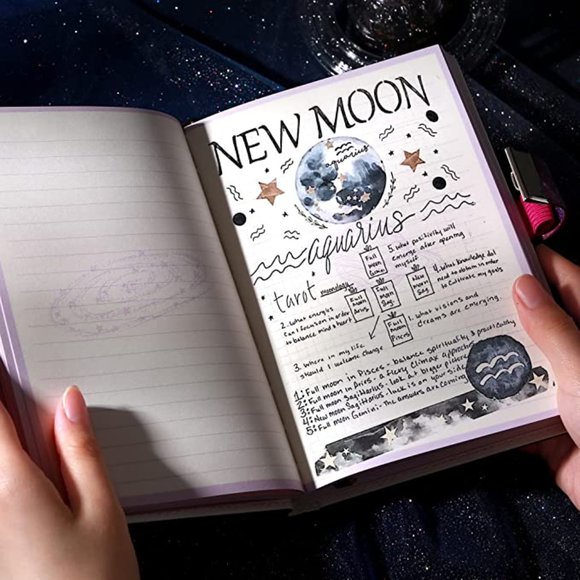 NEW MOON
aquarius
aquarius
tarot
moonology
5. what positivity will
emerge after opening
myself
Full
moon
Gemini
4. What knowledge do I
need to obtain in order
to cultivate my goals
New
moon
Sag.
Full
moon
Sag.
Full
moon
Aries
2. what energies
can I focus on in order
to balance mind & heart
Full
moon
Pisces
1. what visions and
dreams are emerging
3. Where in my life
should I welcome change
1: Full moon in Pisces - balance spirituality & practicality
2: Full moon in Aries - a fiery climax approaches
3: Full moon Sagittarius - look at bigger picture
4: New moon Sagittarius - luck is on your side
5: Full moon Gemini - The answers are coming